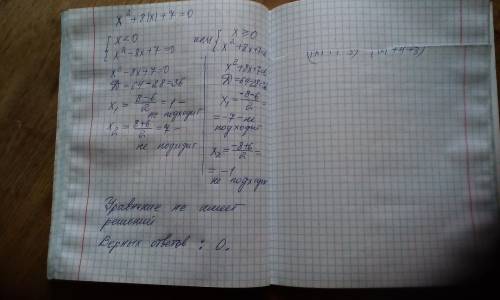 x² + 8|x| + 7 = 0
{ x < 0
{ x² - 8x + 7 = 0
x² - 8x + 7 = 0
D = 64 - 28 = 36
x₁ = (8-6)/2 = 1 -
не подходит
x₂ = (8+6)/2 = 7 -
не подходит
или { x ≥ 0
{ x² + 8x + 7 = 0
x² + 8x + 7 = 0
D = 64 - 28 =
x₁ = (-8-6)/2 =
= -7 - не
подходит
x₂ = (-8+6)/2 =
= -1
не подходит
Уравнение не имеет
решений
Верных ответов : 0.